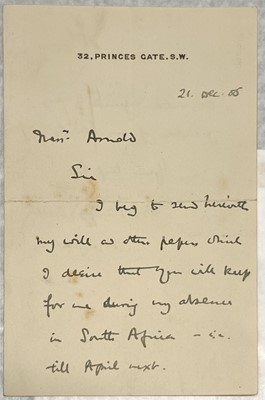 32, PRINCES GATE. S.W.
21. Dec. 05
Messrs. Arnold
Sir
I beg to send herewith
my will & other papers which
I desire that you will keep
for me during my absence
in South Africa – i.e.
till April next.